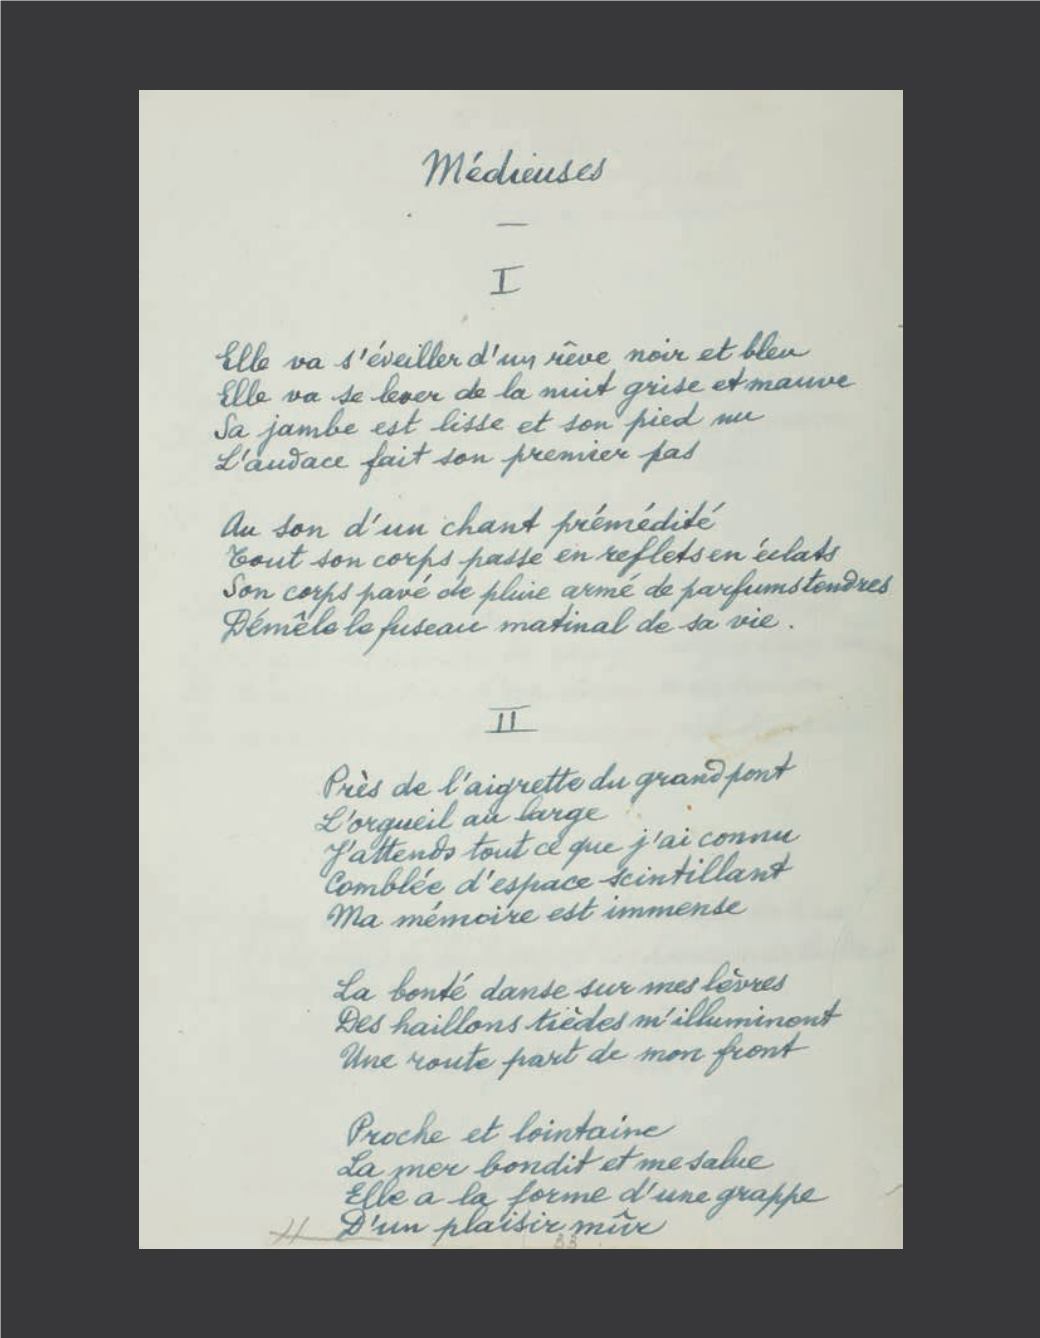 Médieuses
—
I
Elle va s'éveiller d'un rêve noir et bleu
Elle va se lever de la nuit grise et mauve
Sa jambe est lisse et son pied nu
L'audace fait son premier pas
Au son d'un chant prémédité
Tout son corps passe en reflets en éclats
Son corps pavé de pluie armé de parfums tendres
Démêle le fuseau matinal de sa vie.
II
Près de l'aigrette du grand pont
L'orgueil au large
J'attends tout ce que j'ai connu
Comblée d'espace scintillant
Ma mémoire est immense
La bonté danse sur mes lèvres
Des haillons tièdes m'illuminent
Une route part de mon front
Proche et lointaine
La mer bondit et me salue
Elle a la forme d'une grappe
D'un plaisir mûr
33